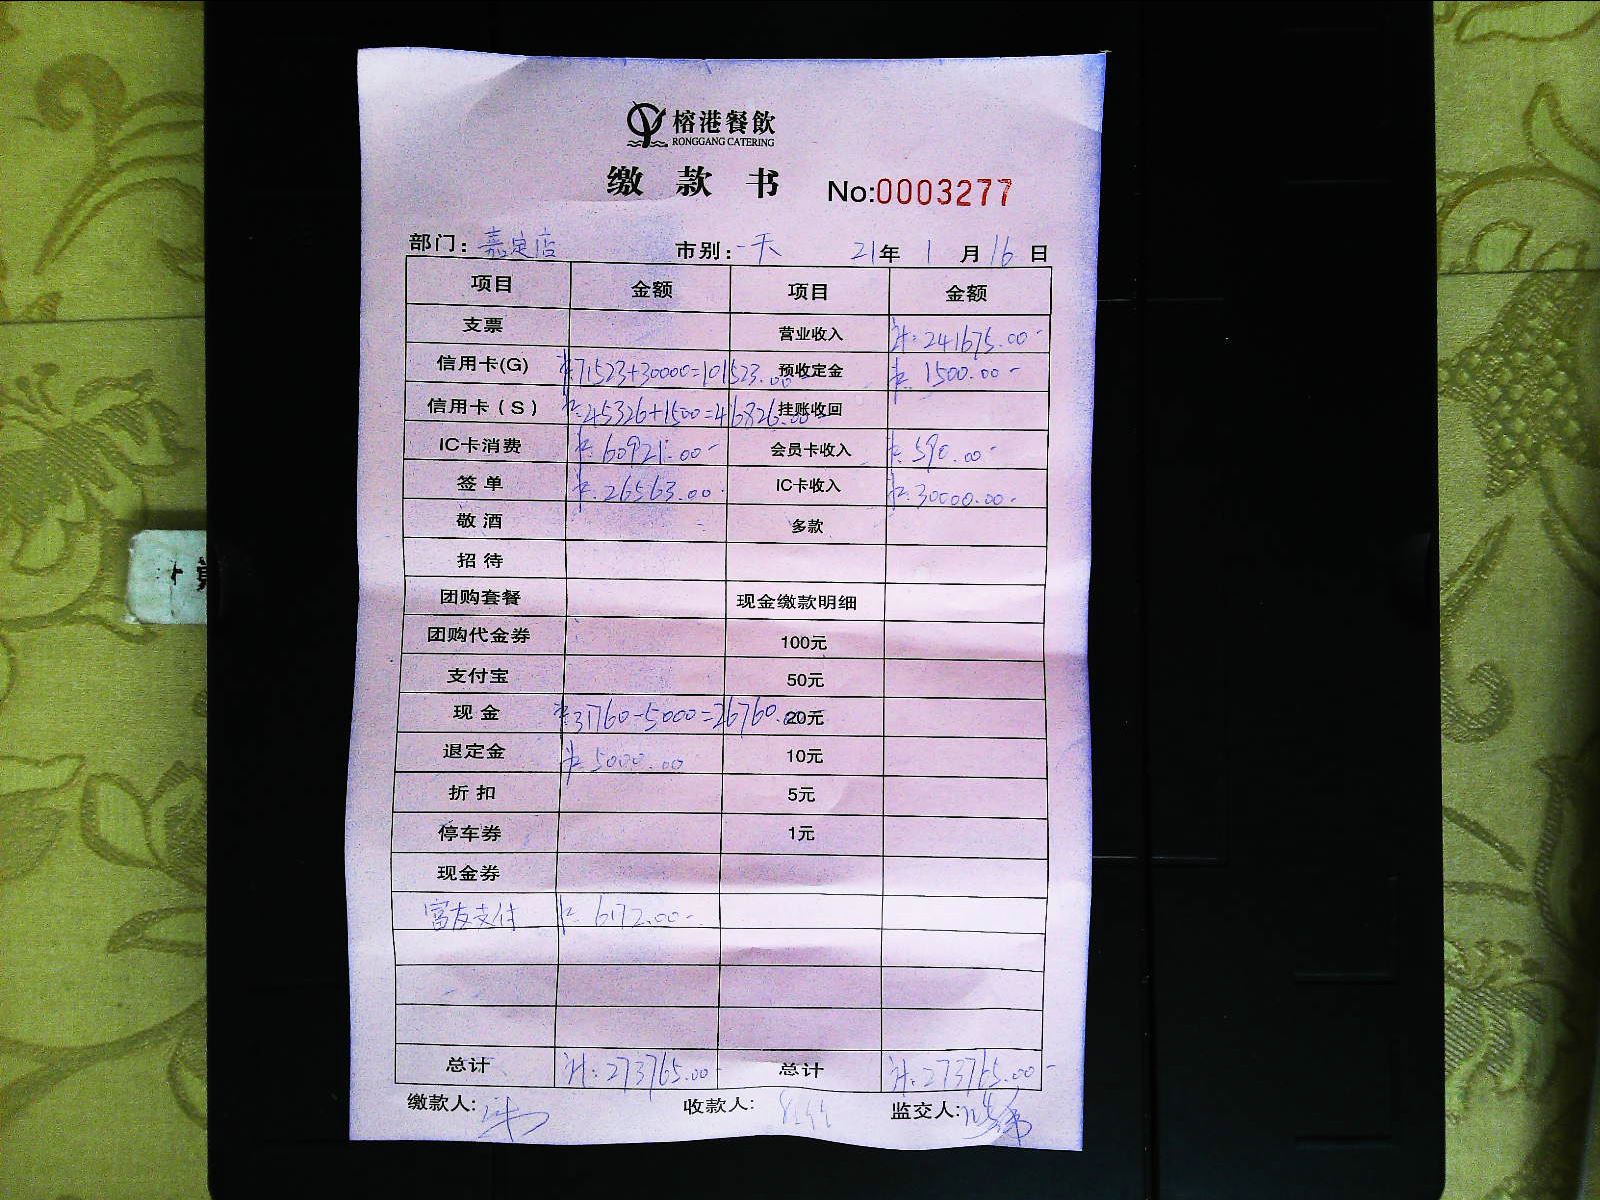 榕港餐飲
RONGGANG CATERING
缴款书 No:0003277
部门：嘉定店 市别：一天 21年1月16日
项目 金额 项目 金额
支票 营业收入 计:241675.00-
信用卡(G) 卡:71523+30000=101523.00- 预收定金 卡:1500.00-
信用卡（S） 卡:45326+1500=46826.00- 挂账收回
IC卡消费 卡:60921.00- 会员卡收入 卡:590.00-
签单 卡:26563.00- IC卡收入 卡:30000.00-
敬酒 多款
招待
团购套餐 现金缴款明细
团购代金券 100元
支付宝 50元
现金 卡:31760-5000=26760.00 20元
退定金 卡:5000.00 10元
折扣 5元
停车券 1元
现金券
富友支付 卡:6172.00-
总计 计:273765.00- 总计 计:273765.00-
缴款人: 收款人: 监交人: